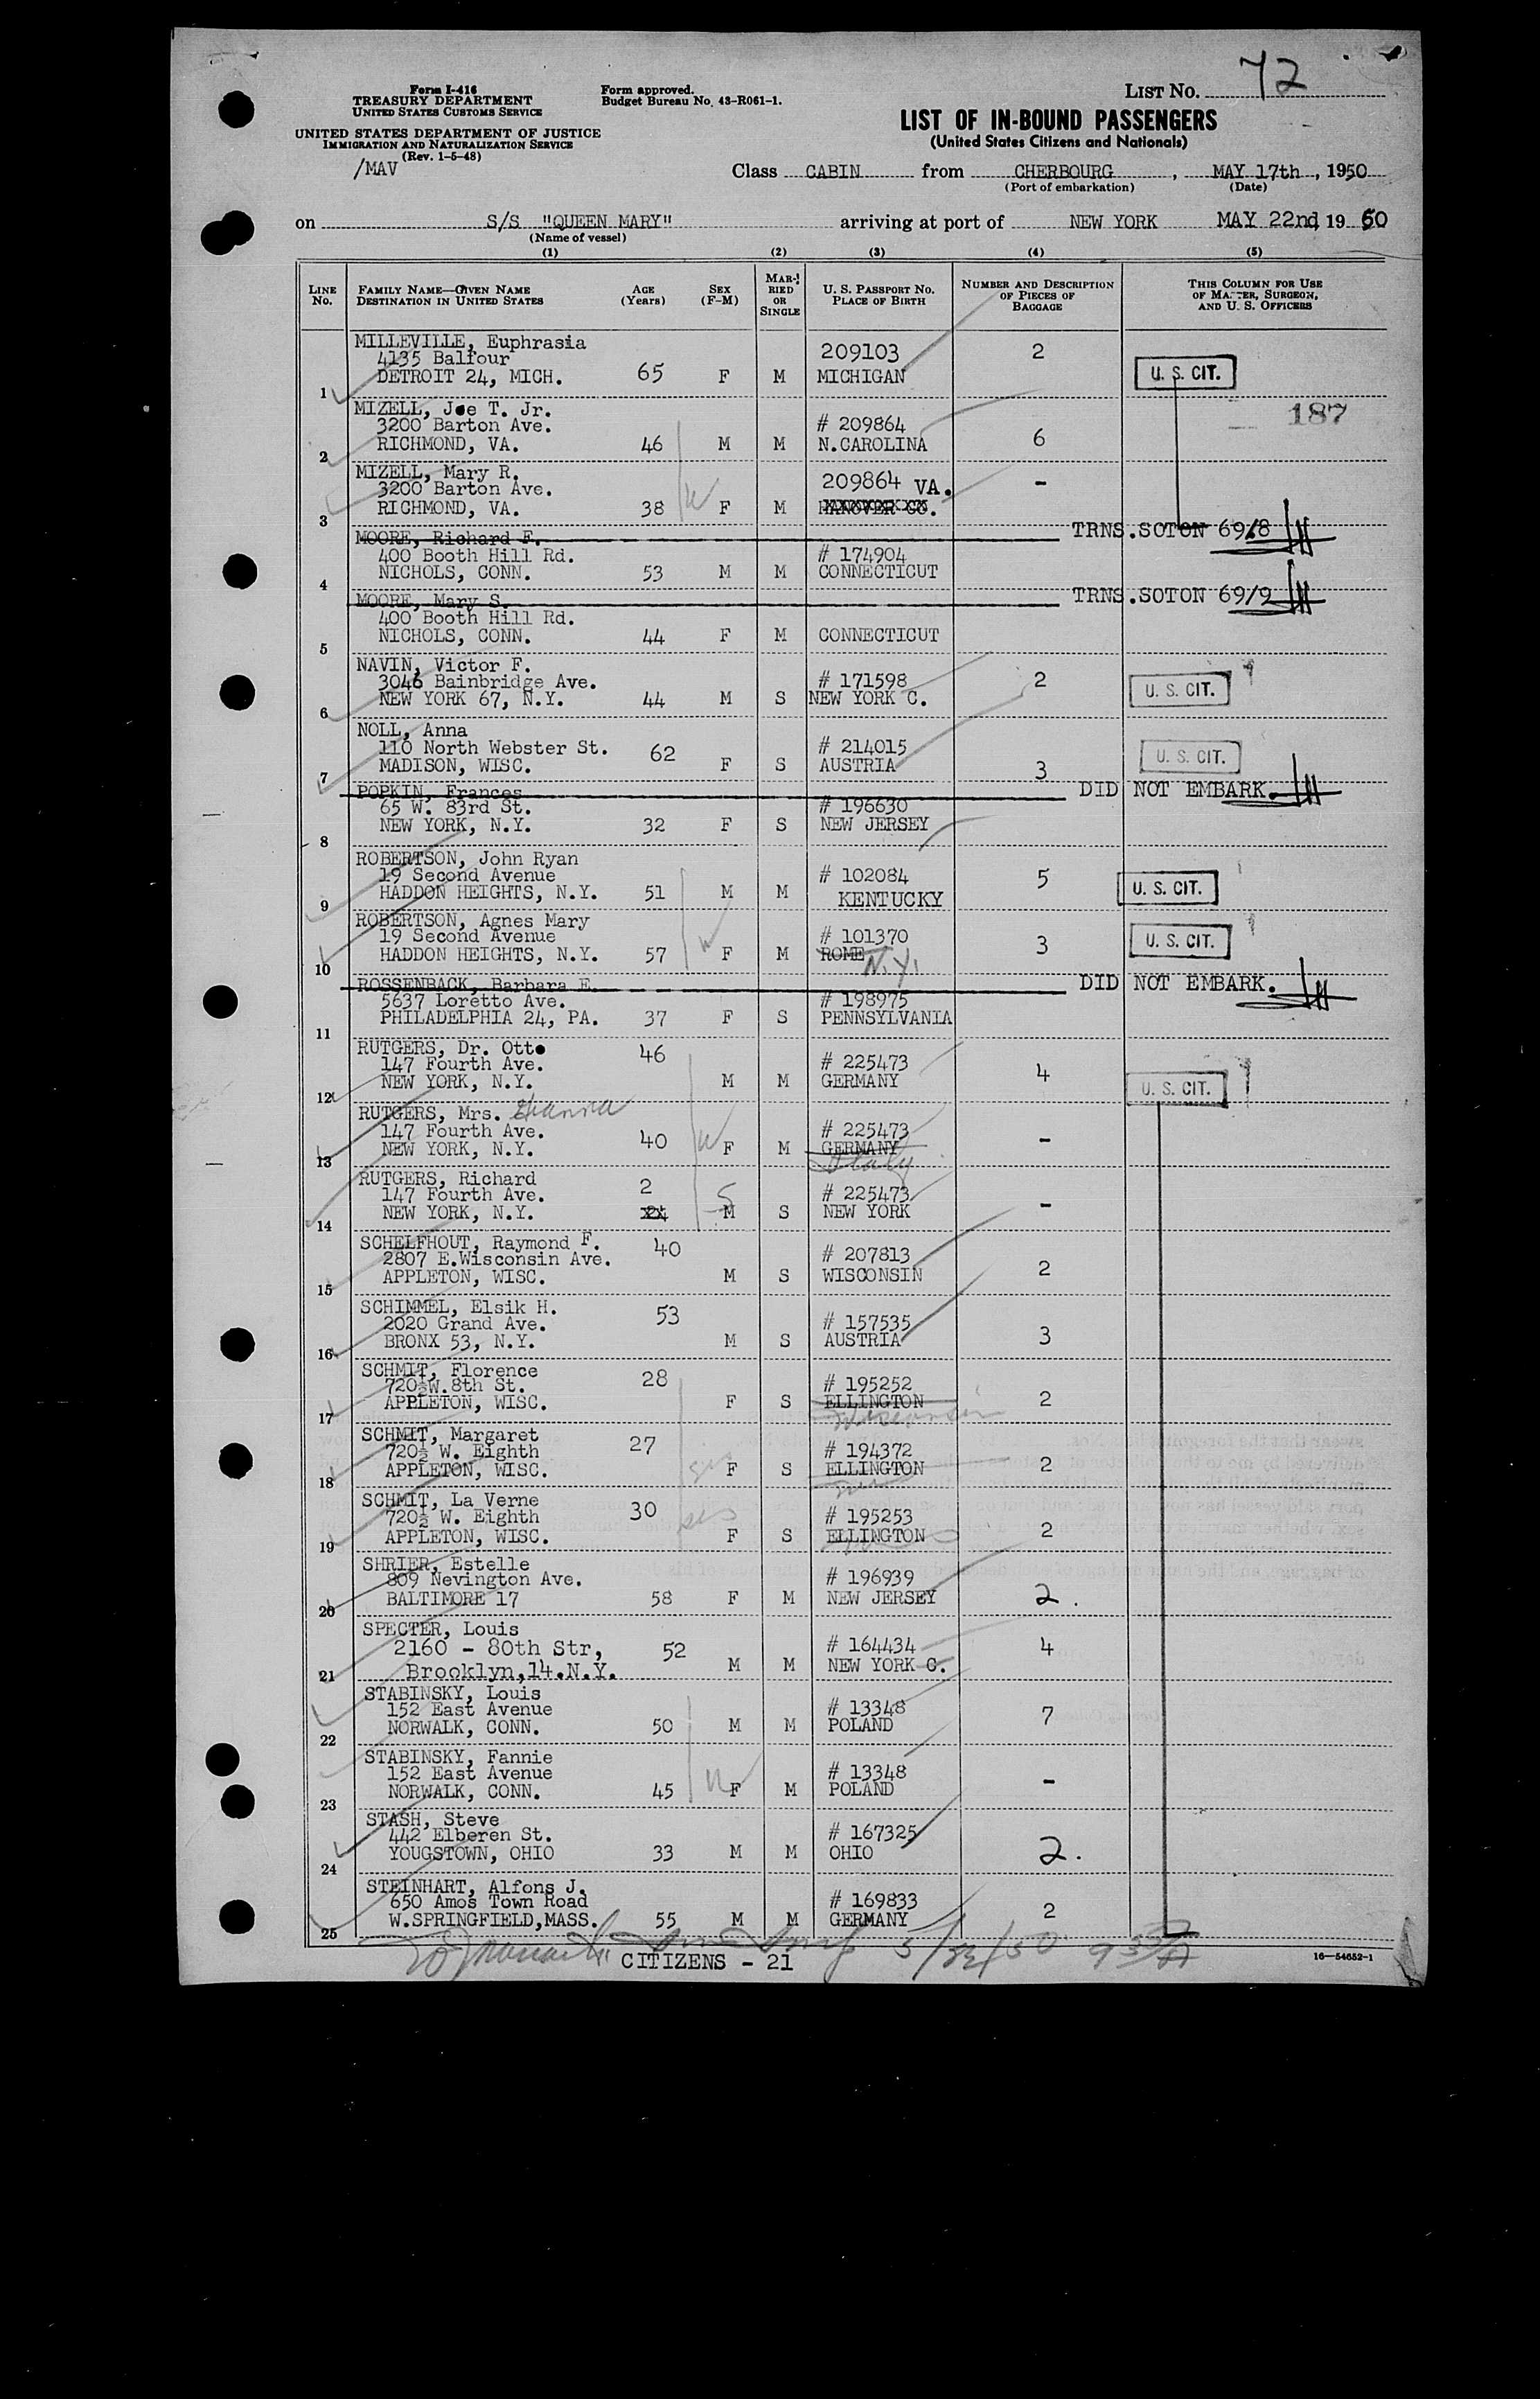 72
Form I-416
TREASURY DEPARTMENT
UNITED STATES CUSTOMS SERVICE
Form approved.
Budget Bureau No. 43-R061-1.
LIST NO.
UNITED STATES DEPARTMENT OF JUSTICE
IMMIGRATION AND NATURALIZATION SERVICE
(Rev. 1-5-48)
/MAV
LIST OF IN-BOUND PASSENGERS
(United States Citizens and Nationals)
Class CABIN from CHERBOURG, MAY 17th, 1950
(Port of embarkation) (Date)
on S/S "QUEEN MARY" arriving at port of NEW YORK MAY 22nd 19 50
(Name of vessel)
(1) (2) (3) (4) (5)
LINE No. FAMILY NAME—GIVEN NAME DESTINATION IN UNITED STATES AGE (Years) SEX (F-M) MARRIED OR SINGLE U. S. PASSPORT NO. PLACE OF BIRTH NUMBER AND DESCRIPTION OF PIECES OF BAGGAGE THIS COLUMN FOR USE OF MASTER, SURGEON, AND U. S. OFFICERS
MILLEVILLE, Euphrasia
4135 Balfour 209103 2
DETROIT 24, MICH. 65 F M MICHIGAN U. S. CIT.
1
MIZELL, Joe T. Jr. 187
3200 Barton Ave. # 209864
RICHMOND, VA. 46 M M N.CAROLINA 6
2
MIZELL, Mary R.
3200 Barton Ave. 209864 VA. -
RICHMOND, VA. 38 F M HANOVER CO.
3
MOORE, Richard F. TRNS.SOTON 69/8
400 Booth Hill Rd. # 174904
NICHOLS, CONN. 53 M M CONNECTICUT
4
MOORE, Mary S. TRNS.SOTON 69/9
400 Booth Hill Rd.
NICHOLS, CONN. 44 F M CONNECTICUT
5
NAVIN, Victor F.
3046 Bainbridge Ave. # 171598 2
NEW YORK 67, N.Y. 44 M S NEW YORK C. U. S. CIT.
6
NOLL, Anna
110 North Webster St. 62 # 214015
MADISON, WISC. F S AUSTRIA 3 U. S. CIT.
7
POPKIN, Frances DID NOT EMBARK.
65 W. 83rd St. # 196630
NEW YORK, N.Y. 32 F S NEW JERSEY
8
ROBERTSON, John Ryan
19 Second Avenue # 102084 5
HADDON HEIGHTS, N.Y. 51 M M KENTUCKY U. S. CIT.
9
ROBERTSON, Agnes Mary
19 Second Avenue # 101370 3 U. S. CIT.
HADDON HEIGHTS, N.Y. 57 F M ROME N.Y.
10
ROSSENBACK, Barbara E. DID NOT EMBARK.
5637 Loretto Ave. # 198975
PHILADELPHIA 24, PA. 37 F S PENNSYLVANIA
11
RUTGERS, Dr. Otto 46
147 Fourth Ave. # 225473
NEW YORK, N.Y. M M GERMANY 4 U. S. CIT.
12
RUTGERS, Mrs. Hanna
147 Fourth Ave. 40 # 225473 -
NEW YORK, N.Y. F M GERMANY
Italy
13
RUTGERS, Richard 2
147 Fourth Ave. # 225473
NEW YORK, N.Y. M S NEW YORK -
14
SCHELFHOUT, Raymond F. 40
2807 E.Wisconsin Ave. # 207813
APPLETON, WISC. M S WISCONSIN 2
15
SCHIMMEL, Elsik H. 53
2020 Grand Ave. # 157535
BRONX 53, N.Y. M S AUSTRIA 3
16
SCHMIT, Florence 28
720½W.8th St. # 195252
APPLETON, WISC. F S ELLINGTON 2
Wisconsin
17
SCHMIT, Margaret 27
720½ W. Eighth # 194372
APPLETON, WISC. F S ELLINGTON 2
18
SCHMIT, La Verne 30
720½ W. Eighth # 195253
APPLETON, WISC. F S ELLINGTON 2
19
SHRIER, Estelle
809 Nevington Ave. # 196939
BALTIMORE 17 58 F M NEW JERSEY 2.
20
SPECTER, Louis
2160 - 80th Str, 52 # 164434 4
Brooklyn,14.N.Y. M M NEW YORK C.
21
STABINSKY, Louis
152 East Avenue # 13348 7
NORWALK, CONN. 50 M M POLAND
22
STABINSKY, Fannie
152 East Avenue # 13348 -
NORWALK, CONN. 45 F M POLAND
23
STASH, Steve
442 Elberen St. # 167325
YOUGSTOWN, OHIO 33 M M OHIO 2.
24
STEINHART, Alfons J.
650 Amos Town Road # 169833
W.SPRINGFIELD,MASS. 55 M M GERMANY 2
25
CITIZENS - 21 5/22/50
16—54652-1